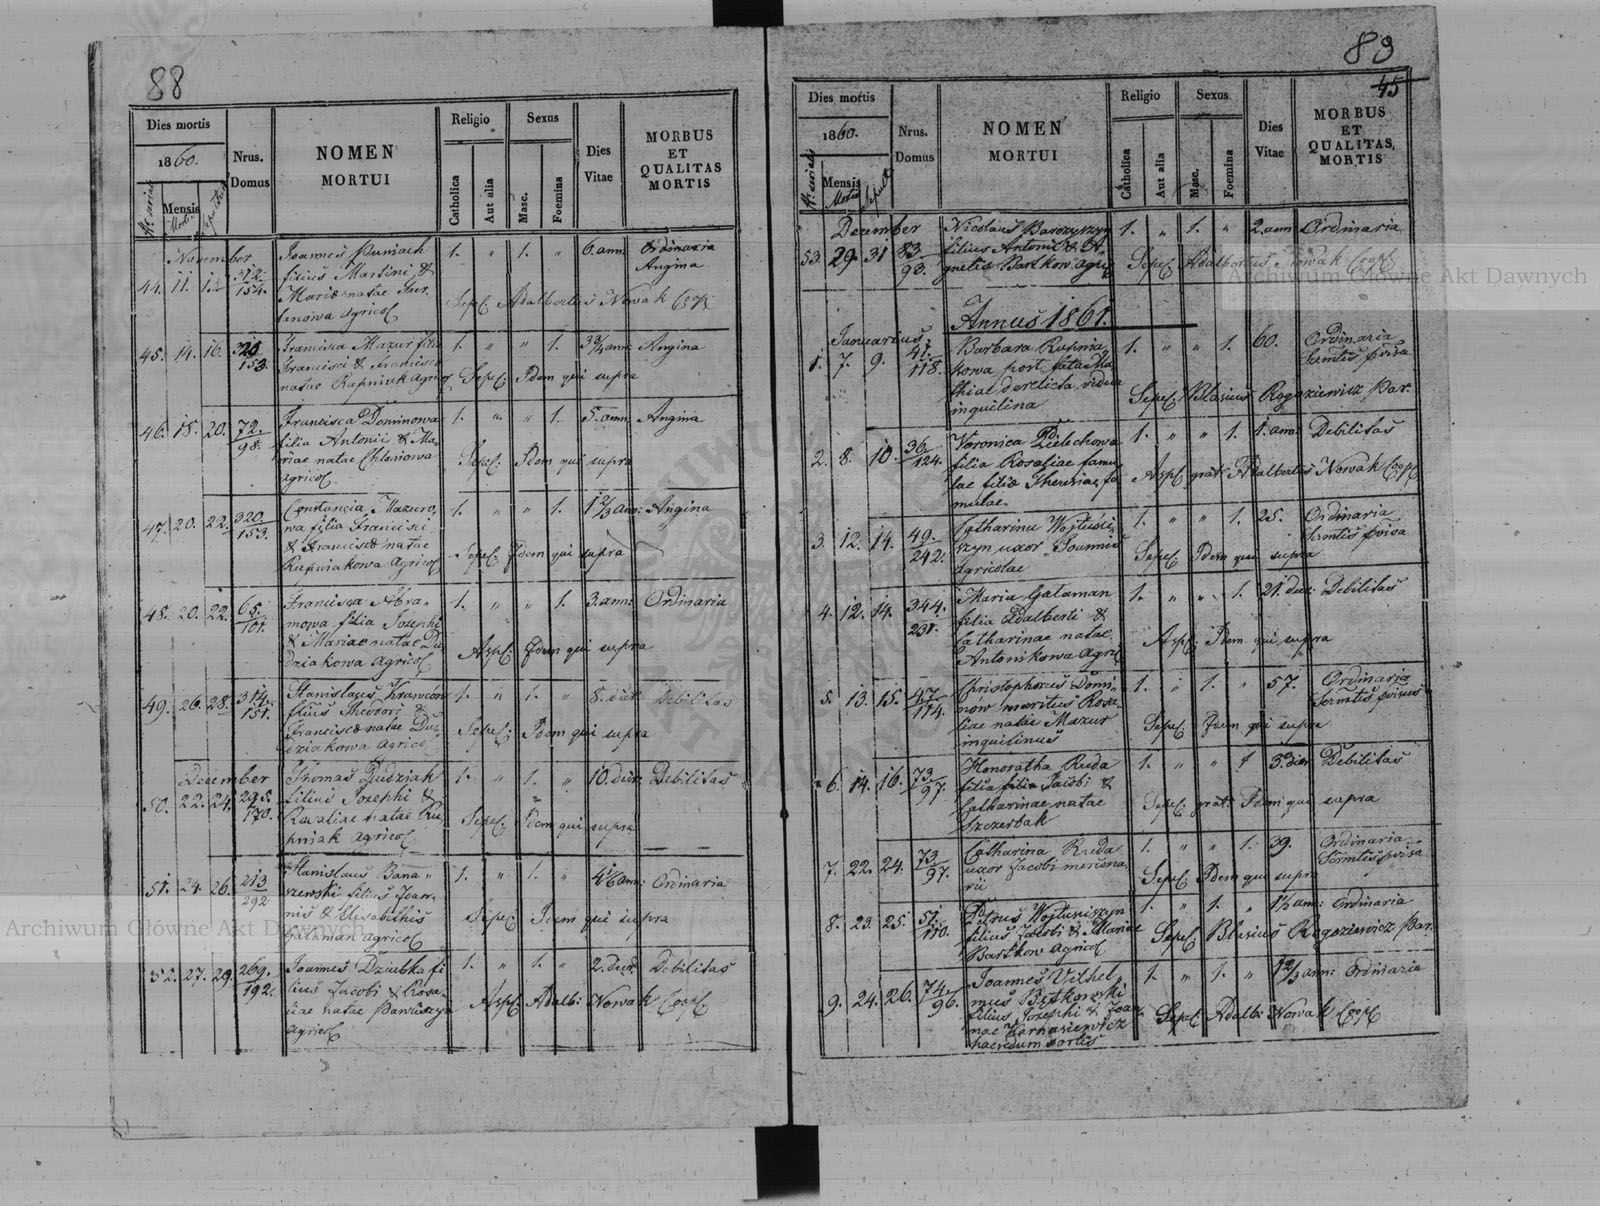 88
Dies mortis
1860.
Nrus. serialis
Mensis
Mortis
Sepulturae
Nrus.
Domus
NOMEN
MORTUI
Religio
Catholica
Aut alia
Sexus
Masc.
Foemina
Dies
Vitae
MORBUS
ET
QUALITAS
MORTIS
November
44. 11. 312/154. Joannes 1. " 1. " 6. ann: Ordinaria
filius Martini & Angina
Mariae natae
Agricol. Sepel: Adalbertus Nowak Coop.
45. 14. 16. 320/153. Francisca Mazur filia 1. " " 1. 3 3/4 ann: Angina
Francisci & Francisca
natae Rupniak Agricol. Sepel: Idem qui supra
46. 15. 20. 72/98. Francisca Dominowa 1. " " 1. 5. ann: Angina
filia Antonii & Ma-
riae natae Sepel: Idem qui supra
Agricol.
47. 20. 22. 320/153. Constancia Mazuro- 1. " " 1. 1 2/3 ann: Angina
wa filia Francisci
& Francisca natae Sepel: Idem qui supra
Rupniakowa Agricol.
48. 20. 22. 65/101. Francisca 1. " " 1. 3. ann: Ordinaria
filia Josephi
& Mariae natae Du-
dziakowa Agricol. Aspel: Idem qui supra
49. 26. 28. 314/151. Stanislaus 1. " 1. " 8. dier: Debilitas
filius Theodori &
Francisca natae Du- Sepel: Idem qui supra
dziakowa Agricol.
December
50. 22. 24. 295/170. Thomas Dudziak 1. " 1. " 10. dier: Debilitas
filius Josephi &
Rosaliae natae Ru- Sepel: Idem qui supra
pniak Agricol.
51. 24. 26. 213/292 Stanislaus Bana- 1. " 1. " 4 1/6 ann: Ordinaria
szewski filius Joan-
nis & Elisabethis Sepel: Idem qui supra
Galaman Agricol.
52. 27. 29. 269/192. Joannes Dziubka fi- 1. " 1. " 2. dier: Debilitas
lius Jacobi & Rosa-
liae natae Aspel: Adalb: Nowak Coop.
Agricol.
89
45
Dies mortis
1860.
Nrus. serialis
Mensis
Mortis
Sepult.
Nrus.
Domus
NOMEN
MORTUI
Religio
Catholica
Aut alia
Sexus
Masc.
Foemina
Dies
Vitae
MORBUS
ET
QUALITAS
MORTIS
December
53. 29. 31. 83/93. Nicolaus 1. " 1. " 2. ann: Ordinaria
filius Antonii & A-
gnetis Bartkow Agric. Sepel: Adalbertus Nowak Coop.
Annus 1861.
Januarius
1. 7. 9. 41/118. Barbara Rupnia- 1. " " 1. 60. Ordinaria
kowa post fata Ma-
thiae derelicta vidua Sepel: Blasius Rogoziewicz Par:
inquilina
2. 8. 10. 36/124. Veronica 1. " " 1. 1. ann: Debilitas
filia Rosaliae famu-
lae filiae Theresiae fa- Aspel: grat: Adalbertus Nowak Coop.
mulae
3. 12. 14. 49/242. Catharina 1. " " 1. 25. Ordinaria
uxor Joannis
agricolae Sepel: Idem qui supra
4. 12. 14. 344/231. Maria Galaman 1. " " 1. 21. dier: Debilitas
filia Adalberti &
Catharinae natae Aspel: Idem qui supra
Antonikowa Agric.
5. 13. 15. 47/114. Christophorus Domi- 1. " 1. " 57. Ordinaria
now maritus Rosa-
liae natae Mazur Sepel: Idem qui supra
inquilinus
6. 14. 16. 73/97. Honoratha Ruda 1. " " 1 3. dier: Debilitas
filia Jacobi &
Catharinae natae Sepel: grat: Idem qui supra
Szczerbak
7. 22. 24. 73/97. Catharina Ruda 1. " " 1. 39. Ordinaria
uxor Jacobi mercena-
rii Sepel: Idem qui supra
8. 23. 25. 51/110. Petrus Wojtuniszyn 1. " 1. " 1 1/2 ann: Ordinaria
filius Jacobi & Mariae
Bartkow Agricol. Sepel: Blasius Rogoziewicz Par:
9. 24. 26. 74/96. Joannes Vilhel- 1. " 1. " 1 2/3 ann: Ordinaria
mus Bętkowski
filius Josephi & Joan-
nae Karnasiewicz Sepel: Adalb: Nowak Coop.
haeredum sortis
Archiwum Główne Akt Dawnych
Archiwum Główne Akt Dawnych